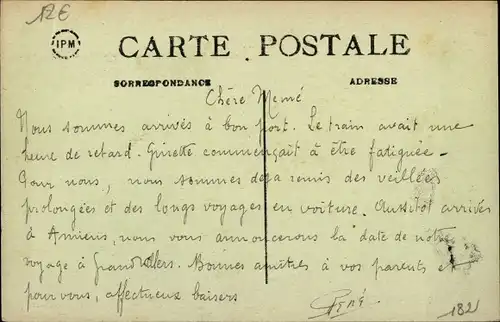 12€
IPM
CARTE POSTALE
CORRESPONDANCE
ADRESSE
Chère Mémé
Nous sommes arrivés à bon port. Le train avait une
heure de retard. Ginette commençait à être fatiguée –
Pour nous, nous sommes déjà remis des veillées
prolongées et des longs voyages en voiture. Aussitôt arrivés
à Amiens, nous vous annoncerons la date de notre
voyage à Grandvillers. Bonnes amitiés à vos parents et
pour vous, affectueux baisers
René
182